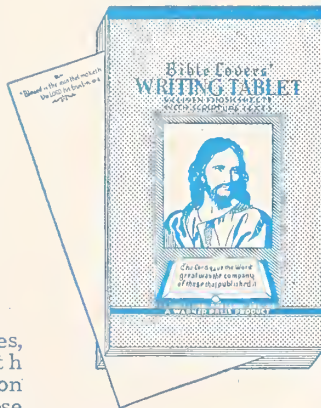 "Blessed is the man that maketh
the LORD his trust
Bible Lovers'
WRITING TABLET
WITH SCRIPTURE TEXTS
The Lord gave the Word
great was the company
of those that published it
A WARNER PRESS PRODUCT
es,
th
on
se